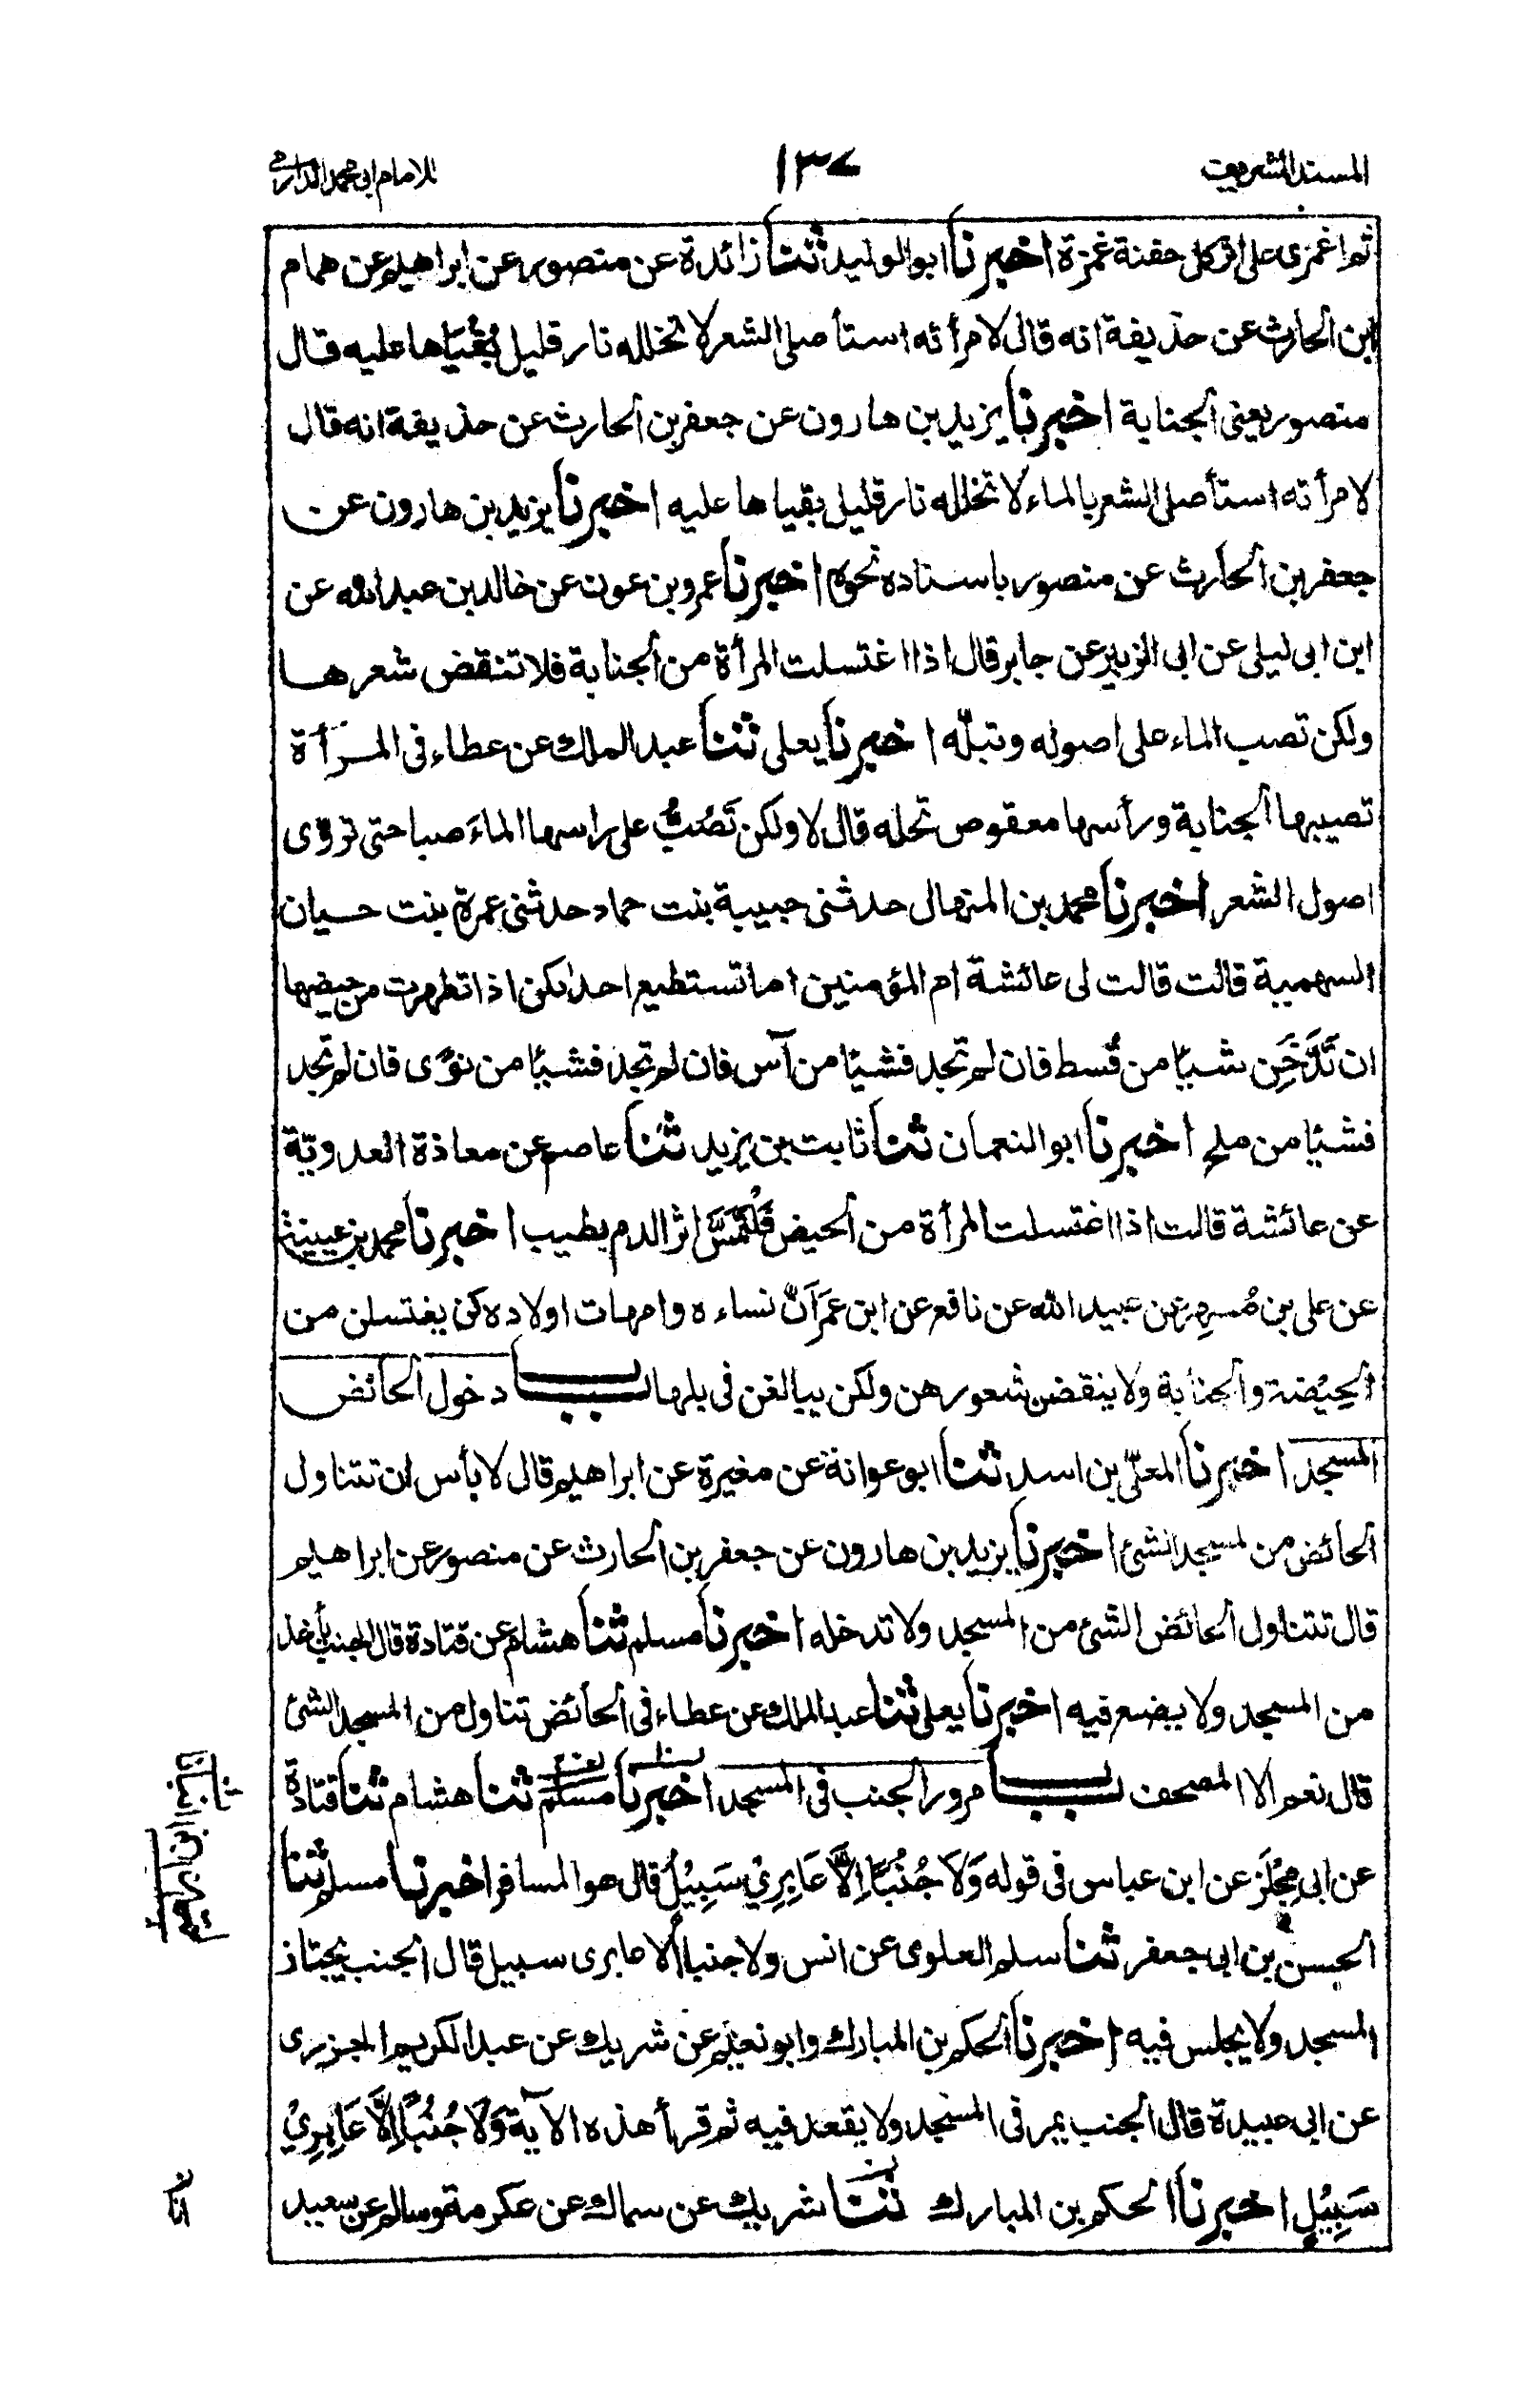 المسند الشريف
١٣٧
للامام ابى محمد الدارمى
ثم اغمزى على اثر كل حفنة غمزة اخبرنا ابو الوليد ثنا زائدة عن منصور عن ابراهيم عن همام
ابن الحارث عن حذيفة انه قال لامرأته استأصلى الشعر لا تخلله نار قليل بُقْيَاها عليه قال
منصور يعنى الجنابة اخبرنا يزيد بن هارون عن جعفر بن الحارث عن حذيفة انه قال
لامرأته استأصلى الشعر بالماء لا تخلله نار قليل بقياها عليه اخبرنا يزيد بن هارون عن
جعفر بن الحارث عن منصور باسناده نحوه اخبرنا عمرو بن عون عن خالد بن عبد الله عن
ابن ابى ليلى عن ابى الزبير عن جابر قال اذا اغتسلت المرأة من الجنابة فلا تنقض شعرها
ولكن تصب الماء على اصوله وتبلّه اخبرنا يعلى ثنا عبد الملك عن عطاء فى المرأة
تصيبها الجنابة ورأسها معقوص تحله قال لا ولكن تَصُبُّ على راسها الماءَ صبا حتى تروّى
اصول الشعر اخبرنا محمد بن المنهال حدثنى حبيبة بنت حماد حدثنى عمرة بنت حسيان
السهمية قالت قالت لى عائشة ام المؤمنين اما تستطيع احداكن اذا تطهرت من حيضها
ان تَدَّخِن شيئا من قُسط فان لم تجد فشيئا من آس فان لم تجد فشيئا من نوى فان لم تجد
فشيئا من ملح اخبرنا ابو النعمان ثنا ثابت بن يزيد ثنا عاصم عن معاذة العدويّة
عن عائشة قالت اذا اغتسلت المرأة من الحيض فَلْتُمِسَّ اثر الدم بطيب اخبرنا محمد بن عيينة
عن على بن مُسهِر عن عبيد الله عن نافع عن ابن عمر اَنّ نساءه وامهات اولاده كن يغتسلن من
الحِيْضة والجنابة ولا ينقضن شعورهن ولكن يبالغن فى بلها باب دخول الحائض
المسجد اخبرنا المعلّى بن اسد ثنا ابو عوانة عن مغيرة عن ابراهيم قال لا بأس ان تتناول
الحائض من المسجد الشئ اخبرنا يزيد بن هارون عن جعفر بن الحارث عن منصور عن ابراهيم
قال تتناول الحائض الشئ من المسجد ولا تدخله اخبرنا مسلم ثنا هشام عن قتادة قال الجنب يأخذ
من المسجد ولا يضع فيه اخبرنا يعلى ثنا عبد الملك عن عطاء فى الحائض تناول من المسجد الشئ
قال نعم الا المصحف باب مرور الجنب فى المسجد اخبرنا مسلم ثنا هشام ثنا قتادة
عن ابى مِجْلَز عن ابن عباس فى قوله وَلَا جُنُبًا اِلَّا عَابِرِيْ سَبِيْلٍ قال هو المسافر اخبرنا مسلم ثنا
الحسن بن ابى جعفر ثنا سلم العلوى عن انس ولا جنبا الا عابرى سبيل قال الجنب يجتاز
المسجد ولا يجلس فيه اخبرنا الحكم بن المبارك وابو نعيم عن شريك عن عبد الكريم الجزرى
عن ابى عبيدة قال الجنب يمر فى المسجد ولا يقعد فيه ثم قرأ هذه الآية وَلَا جُنُبًا اِلَّا عَابِرِيْ
سَبِيْلٍ اخبرنا الحكم بن المبارك ثنا شريك عن سماك عن عكرمة وسالم عن سعيد